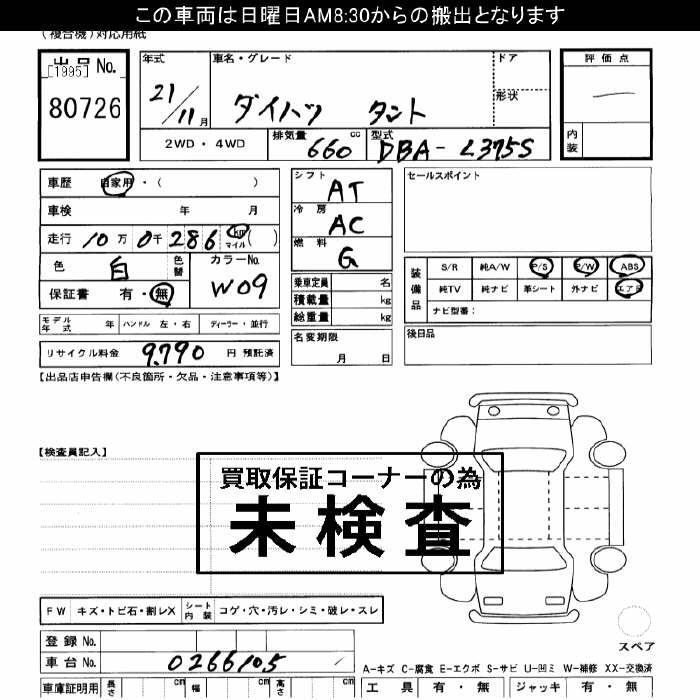 この車両は日曜日AM8:30からの搬出となります
(複合機)対応用紙
出品No.
[1995]
80726
年式
21/11月
車名・グレード
ダイハツ タント
ドア
形状
評価点
内装
2WD・4WD
排気量 660 cc
型式 DBA-L375S
車歴 自家用・( )
車検 年 月
走行 10万 0千 286 km マイル ( )
色 白 色替
カラーNo. W09
保証書 有・無
シフト AT
冷房 AC
燃料 G
乗車定員 名
積載量 kg
総重量 kg
セールスポイント
装備品
S/R 純A/W P/S P/W ABS
純TV 純ナビ 革シート 外ナビ エアB
ナビ型番:
モデル年式 年 ハンドル 左・右 ディーラー・並行
名変期限 月 日
後日品
リサイクル料金 9,790 円 預託済
【出品店申告欄(不良箇所・欠品・注意事項等)】
【検査員記入】
買取保証コーナーの為
未検査
FW キズ・トビ石・割レX シート内装 コゲ・穴・汚レ・シミ・破レ・スレ
登録No.
車台No. 0266105
スペア
A-キズ C-腐食 E-エクボ S-サビ U-凹ミ W-補修 XX-交換済
車庫証明用 長さ cm 幅 cm 高さ cm
工具 有・無 ジャッキ 有・無